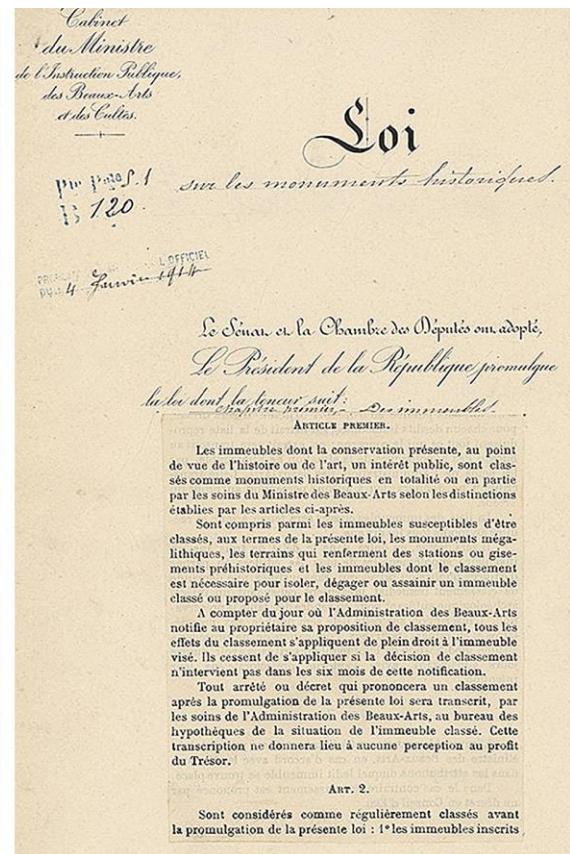 Cabinet
du Ministre
de l'Instruction Publique,
des Beaux-Arts
et des Cultes.
Loi
sur les monuments historiques.
B 120.
OFFICIEL
DU 4 Janvier 1914
Le Sénat et la Chambre des Députés ont adopté,
Le Président de la République promulgue
la loi dont la teneur suit:
Chapitre premier - Des immeubles.
ARTICLE PREMIER.
Les immeubles dont la conservation présente, au point
de vue de l'histoire ou de l'art, un intérêt public, sont clas-
sés comme monuments historiques en totalité ou en partie
par les soins du Ministre des Beaux-Arts selon les distinctions
établies par les articles ci-après.
Sont compris parmi les immeubles susceptibles d'être
classés, aux termes de la présente loi, les monuments méga-
lithiques, les terrains qui renferment des stations ou gise-
ments préhistoriques et les immeubles dont le classement
est nécessaire pour isoler, dégager ou assainir un immeuble
classé ou proposé pour le classement.
A compter du jour où l'Administration des Beaux-Arts
notifie au propriétaire sa proposition de classement, tous les
effets du classement s'appliquent de plein droit à l'immeuble
visé. Ils cessent de s'appliquer si la décision de classement
n'intervient pas dans les six mois de cette notification.
Tout arrêté ou décret qui prononcera un classement
après la promulgation de la présente loi sera transcrit, par
les soins de l'Administration des Beaux-Arts, au bureau des
hypothèques de la situation de l'immeuble classé. Cette
transcription ne donnera lieu à aucune perception au profit
du Trésor.
ART. 2.
Sont considérés comme régulièrement classés avant
la promulgation de la présente loi : 1° les immeubles inscrits